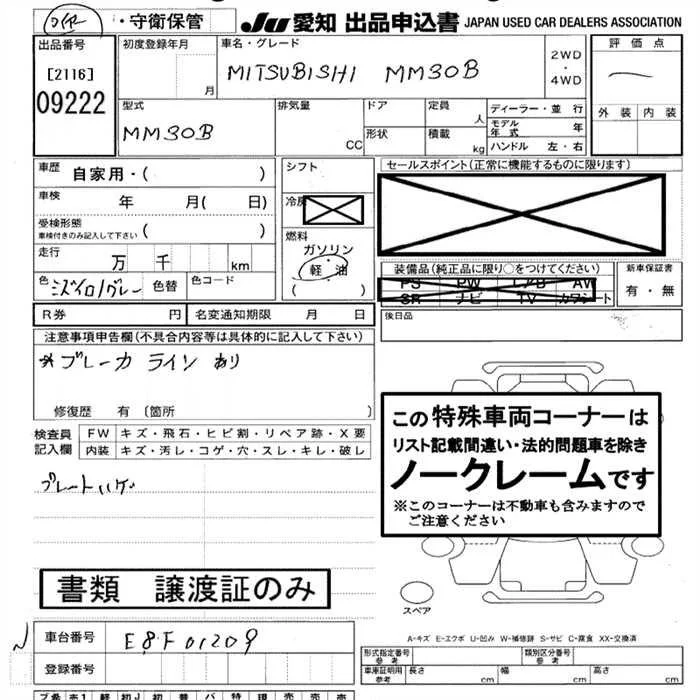 ・守衛保管 JU 愛知 出品申込書 JAPAN USED CAR DEALERS ASSOCIATION
出品番号
[2116]
09222
初度登録年月
月
車名・グレード
MITSUBISHI MM30B
2WD
・
4WD
評価点
外装 内装
型式
MM30B
排気量
CC
ドア
形状
定員
人
積載
kg
ディーラー・並 行
モデル年式 年
ハンドル 左・右
車歴 自家用・( )
車検 年 月( 日)
受検形態
車検付きのみ記入して下さい ( )
走行 万 千 km
色 ミズイロ/グレー 色替 色コード
R券 円 名変通知期限 月 日
シフト
冷房
燃料
ガソリン
軽・油
( )
セールスポイント(正常に機能するものに限ります)
装備品(純正品に限り○をつけてください)
PS PW エアB AW
SR ナビ TV カワシート
新車保証書
有・無
後日品
注意事項申告欄(不具合内容等は具体的に記入して下さい)
*ブレーカ ライン あり
修復歴 有 〔箇所 〕
検査員
記入欄
FW キズ・飛石・ヒビ割・リペア跡・X要
内装 キズ・汚レ・コゲ・穴・スレ・キレ・破レ
プレートハゲ
この特殊車両コーナーは
リスト記載間違い・法的問題車を除き
ノークレームです
※このコーナーは不動車も含みますので
ご注意ください
書類 譲渡証のみ
スペア
A-キズ E-エクボ U-凹み W-補修跡 S-サビ C-腐食 XX-交換済
車台番号 E8F01209
登録番号
型式指定番号
参考
類別区分番号
参考
車庫証明用
参考
長さ cm 幅 cm 高さ cm